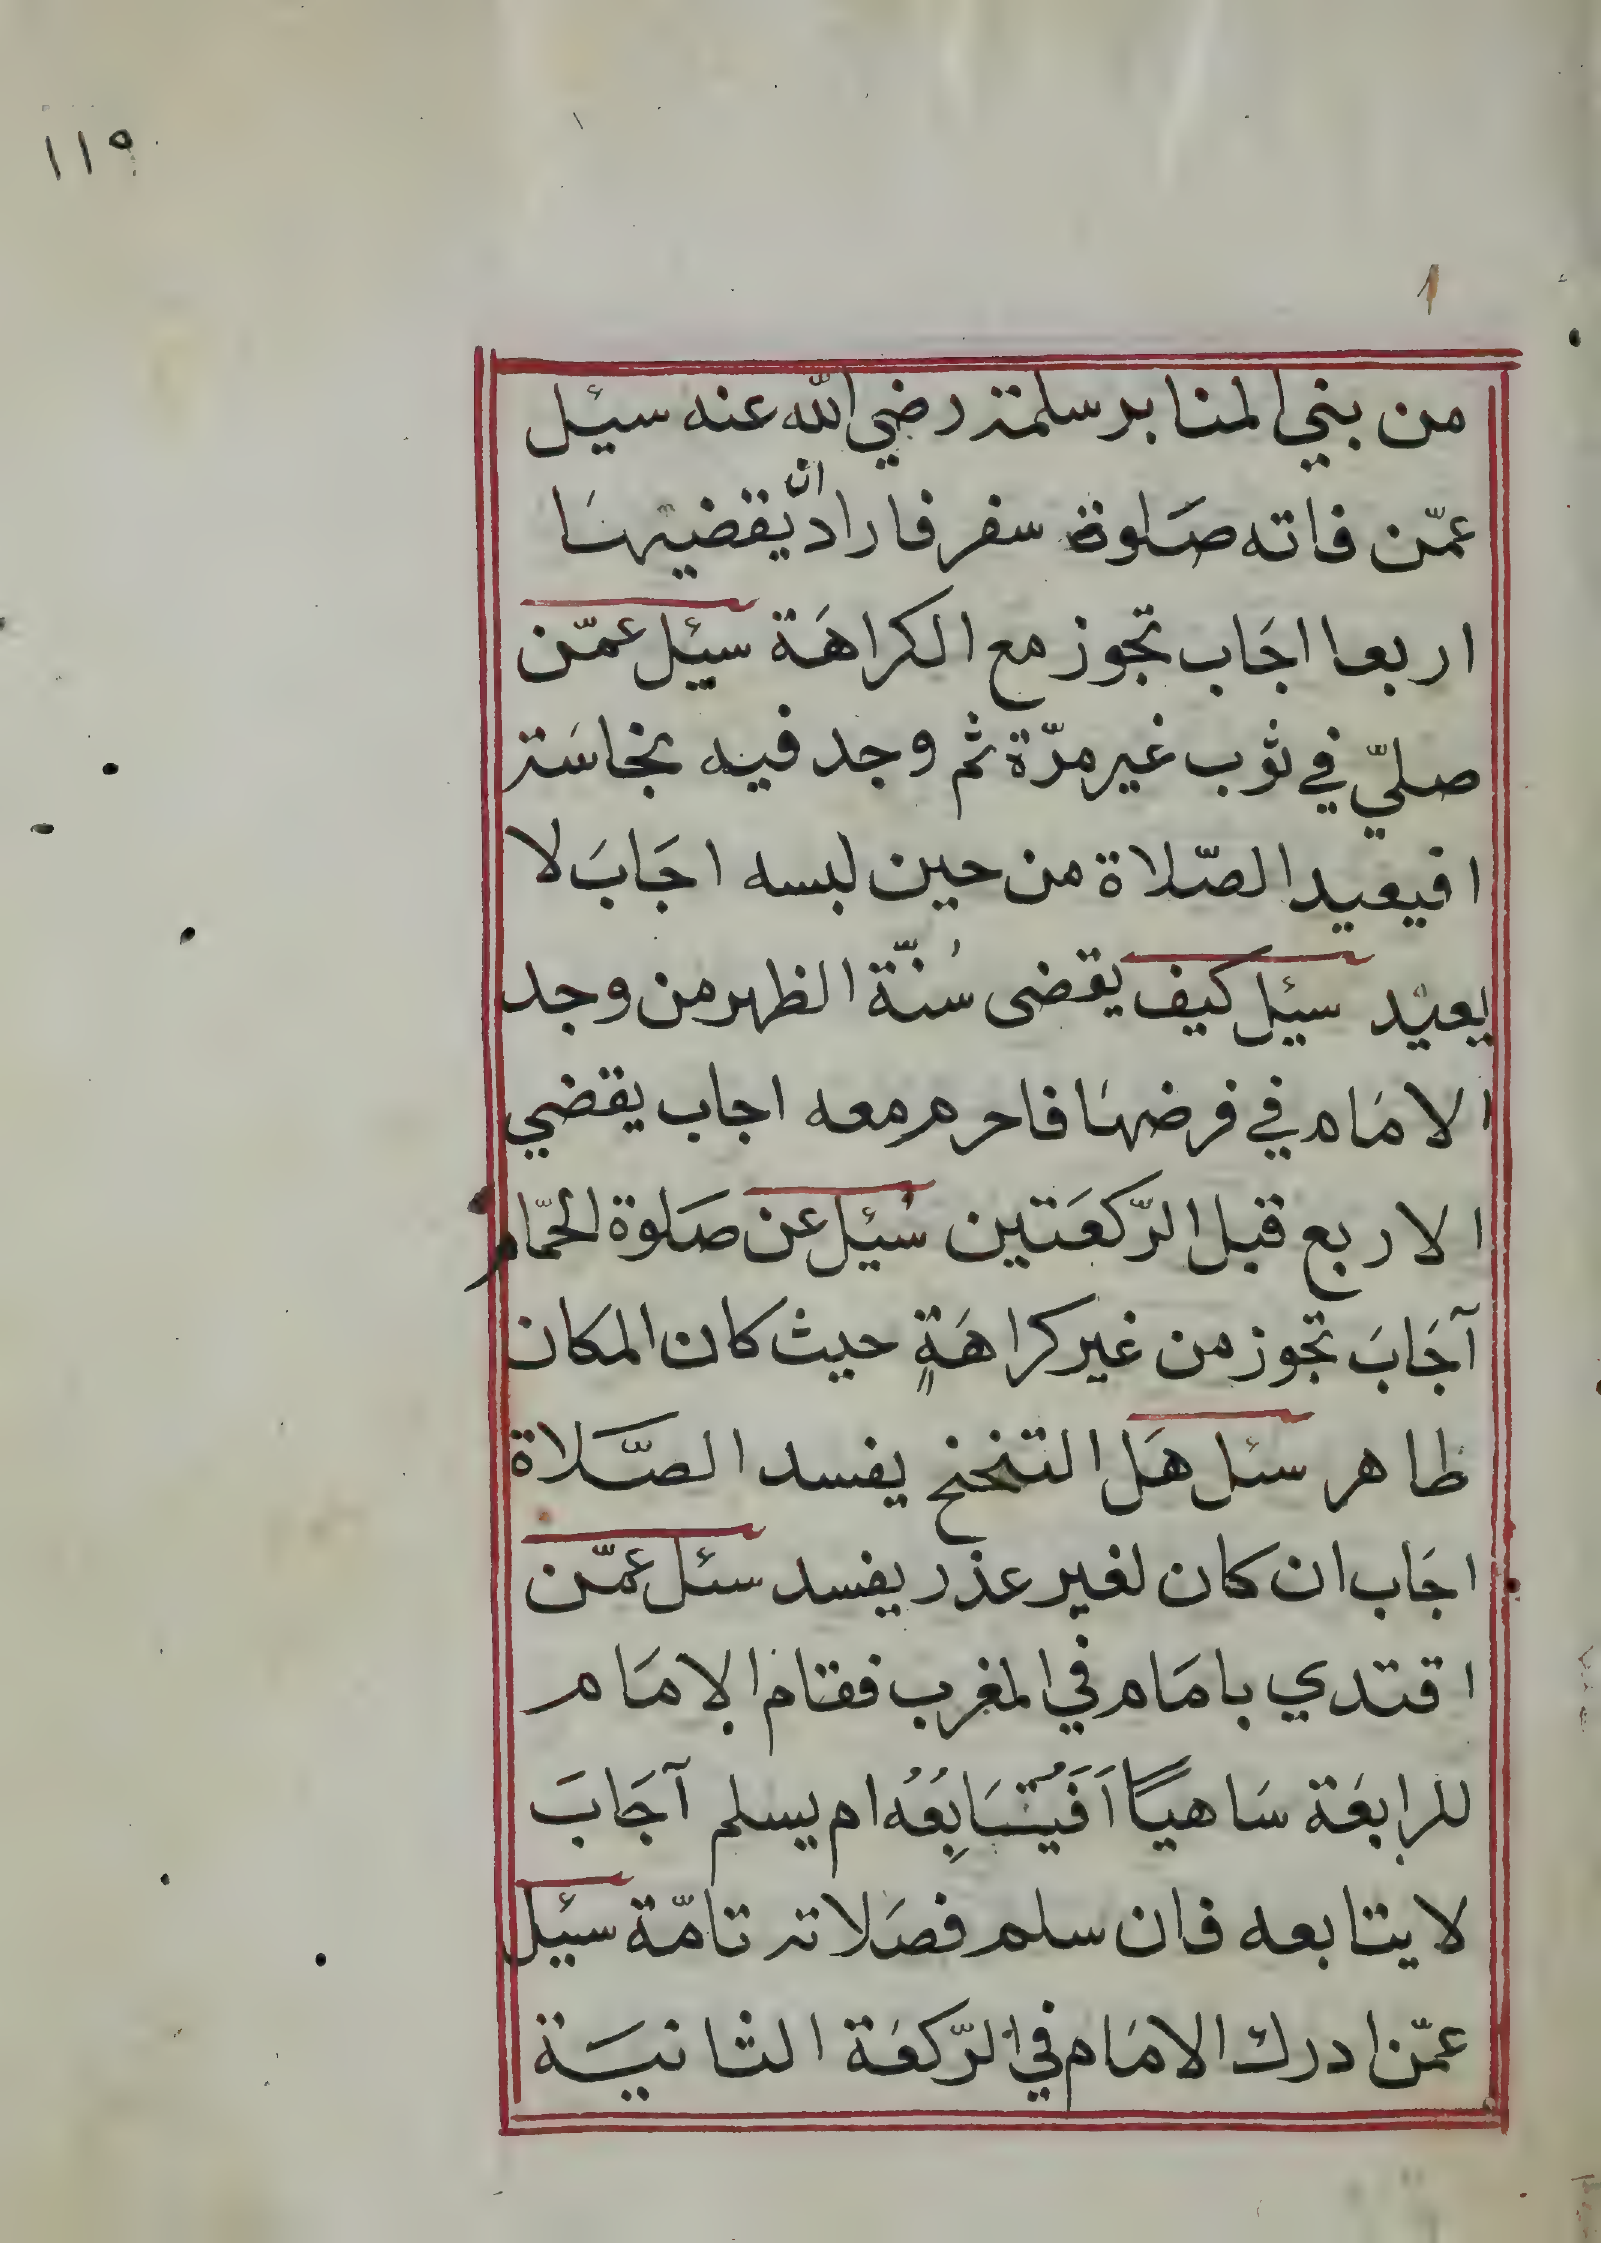 ١١٩
من بني المنابر سلمة رضي الله عنه سئل
عمّن فاته صَلوة سفر فاراد انّ يقضيهَا
اربعا اجَاب تجوز مع الكراهَة سئل عمّن
صليّ في ثوب غير مرّة ثم وجد فيه نجاسَة
افيعيد الصّلاة من حين لبسه اجَابَ لا
يعيد سئل كيف يقضى سُنّة الظهر من وجد
الامَام في فرضهَا فاحرم معه اجاب يقضي
الاربع قبل الرّكعَتين سُئل عن صَلوة الحمّام
آجَابَ تجوز من غير كراهَةٍ حيث كان المكان
طاهر سئل هَل التنحنح يفسد الصَّلاة
اجَاب ان كان لغير عذر يفسد سئل عمّن
اقتدي بامَام في المغرب فقام الامَام
للرابعَة سَاهيًا اَفَيُتَابِعُهُ ام يسلم آجَابَ
لا يتابعه فان سلم فصَلاته تامّة سئل
عمّن ادرك الامَام في الرّكعَة الثانيَة